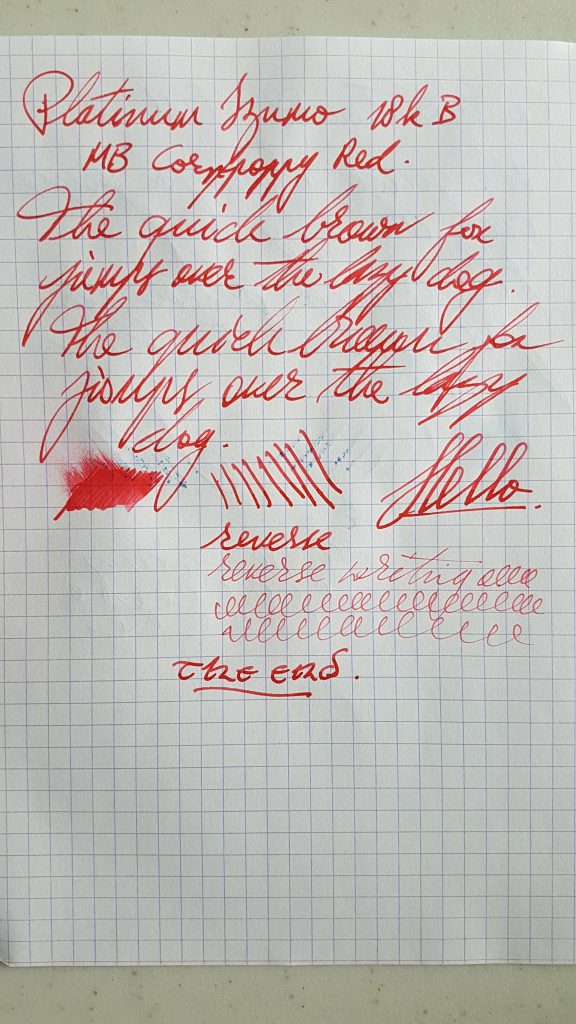 Platinum Izumo 18k B
MB Cornpoppy Red.
The quick brown fox
jumps over the lazy dog.
The quick brown fox
jumps over the lazy
dog.
Hello.
reverse
reverse writing
the end.